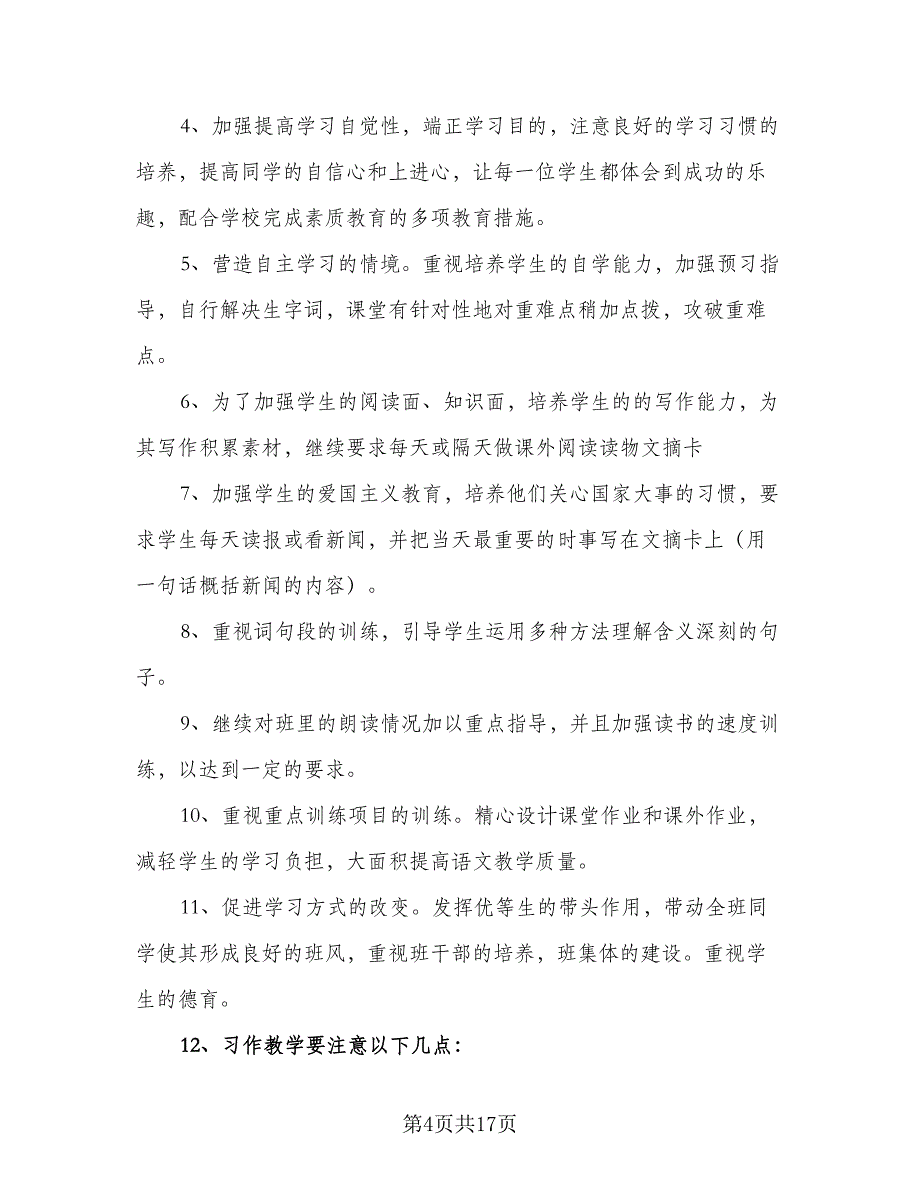 4、加强提高学习自觉性，端正学习目的，注意良好的学习习惯的
培养，提高同学的自信心和上进心，让每一位学生都体会到成功的乐
趣，配合学校完成素质教育的多项教育措施。
5、营造自主学习的情境。重视培养学生的自学能力，加强预习指
导，自行解决生字词，课堂有针对性地对重难点稍加点拨，攻破重难
点。
6、为了加强学生的阅读面、知识面，培养学生的的写作能力，为
其写作积累素材，继续要求每天或隔天做课外阅读读物文摘卡
7、加强学生的爱国主义教育，培养他们关心国家大事的习惯，要
求学生每天读报或看新闻，并把当天最重要的时事写在文摘卡上（用
一句话概括新闻的内容）。
8、重视词句段的训练，引导学生运用多种方法理解含义深刻的句
子。
9、继续对班里的朗读情况加以重点指导，并且加强读书的速度训
练，以达到一定的要求。
10、重视重点训练项目的训练。精心设计课堂作业和课外作业，
减轻学生的学习负担，大面积提高语文教学质量。
11、促进学习方式的改变。发挥优等生的带头作用，带动全班同
学使其形成良好的班风，重视班干部的培养，班集体的建设。重视学
生的德育。
12、习作教学要注意以下几点：
第4页共17页